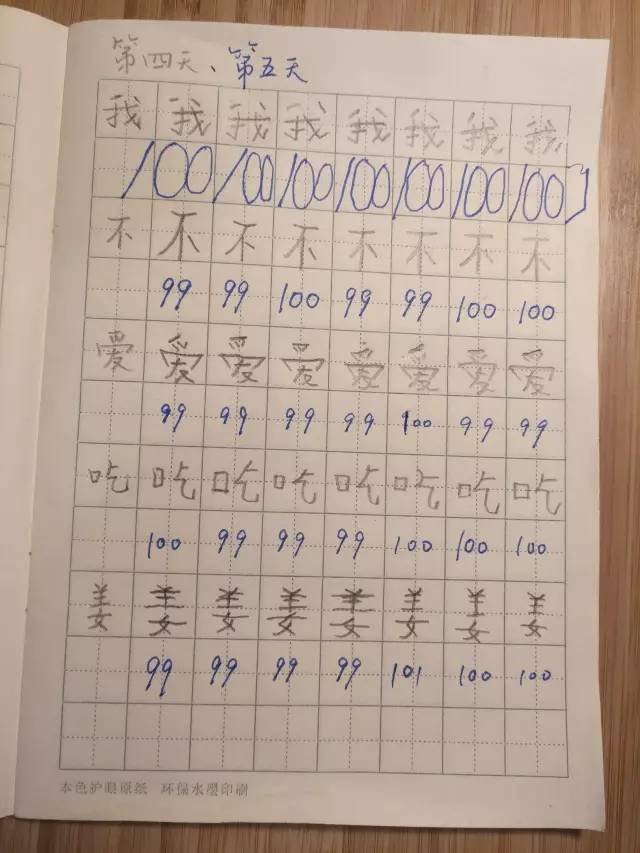 第四天、第五天
我 我 我 我 我 我 我 我
100 100 100 100 100 100 100
不 不 不 不 不 不 不 不
99 99 100 99 99 100 100
爱 爱 爱 爱 爱 爱 爱 爱
99 99 99 99 100 99 99
吃 吃 吃 吃 吃 吃 吃 吃
100 99 99 99 100 100 100
姜 姜 姜 姜 姜 姜 姜 姜
99 99 99 99 101 100 100
本色护眼原纸 环保水墨印刷